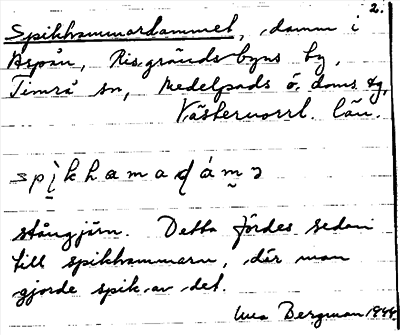 2.
Spikhammardammet, damm i
Aspån, Risgrändsbyns by,
Timrå sn, Medelpads ö. doms tg,
Västernorrl. län.
stångjärn. Detta fördes sedan
till spikhammarn, där man
gjorde spik av det.
Bergman 1944.